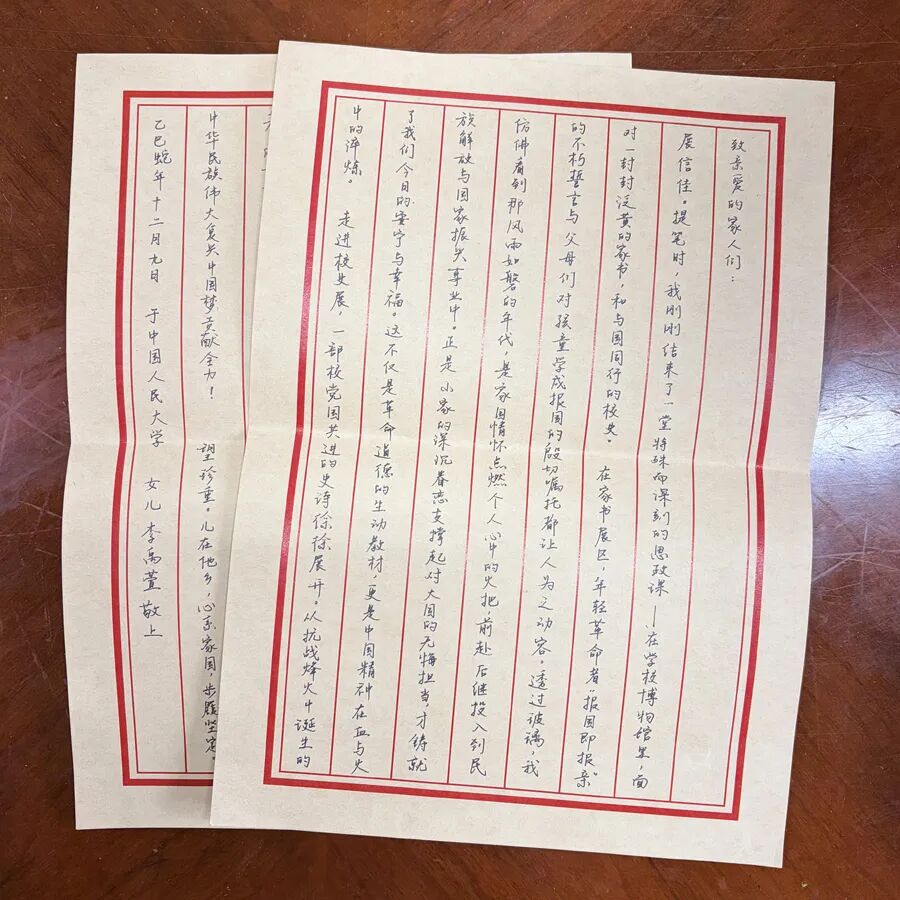 致亲爱的家人们：
展信佳。提笔时，我刚刚结束了一堂特殊而深刻的思政课——在学校博物馆里，面
对一封封泛黄的家书，和与国同行的校史。 在家书展区，年轻革命者“报国即报亲”
的不朽誓言与父母们对孩童学成报国的殷切嘱托都让人为之动容。透过玻璃，我
仿佛看到那风雨如磐的年代，是家国情怀点燃个人心中的火把，前赴后继投入到民
族解放与国家振兴事业中。正是小家的深沉眷恋支撑起对大国的无悔担当，才铸就
了我们今日的安宁与幸福。这不仅是革命道德的生动教材，更是中国精神在血与火
中的淬炼。 走进校史展，一部校党国共进的史诗徐徐展开。从抗战烽火中诞生的
中华民族伟大复兴中国梦贡献全力！ 望珍重。儿在他乡，心系家国，步履坚定。
乙巳蛇年十二月九日 于中国人民大学 女儿李禹萱敬上